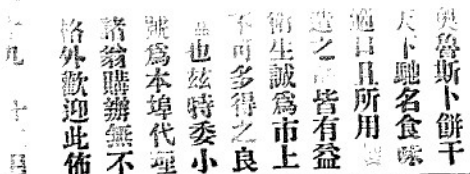 奧魯斯卜餅干
天下馳名食味
適口且所用
造之皆有益
衛生誠爲市上
不可多得之良
也玆特委小
號爲本埠代理
諸翁購辦無不
格外歡迎此佈
十九 十 月